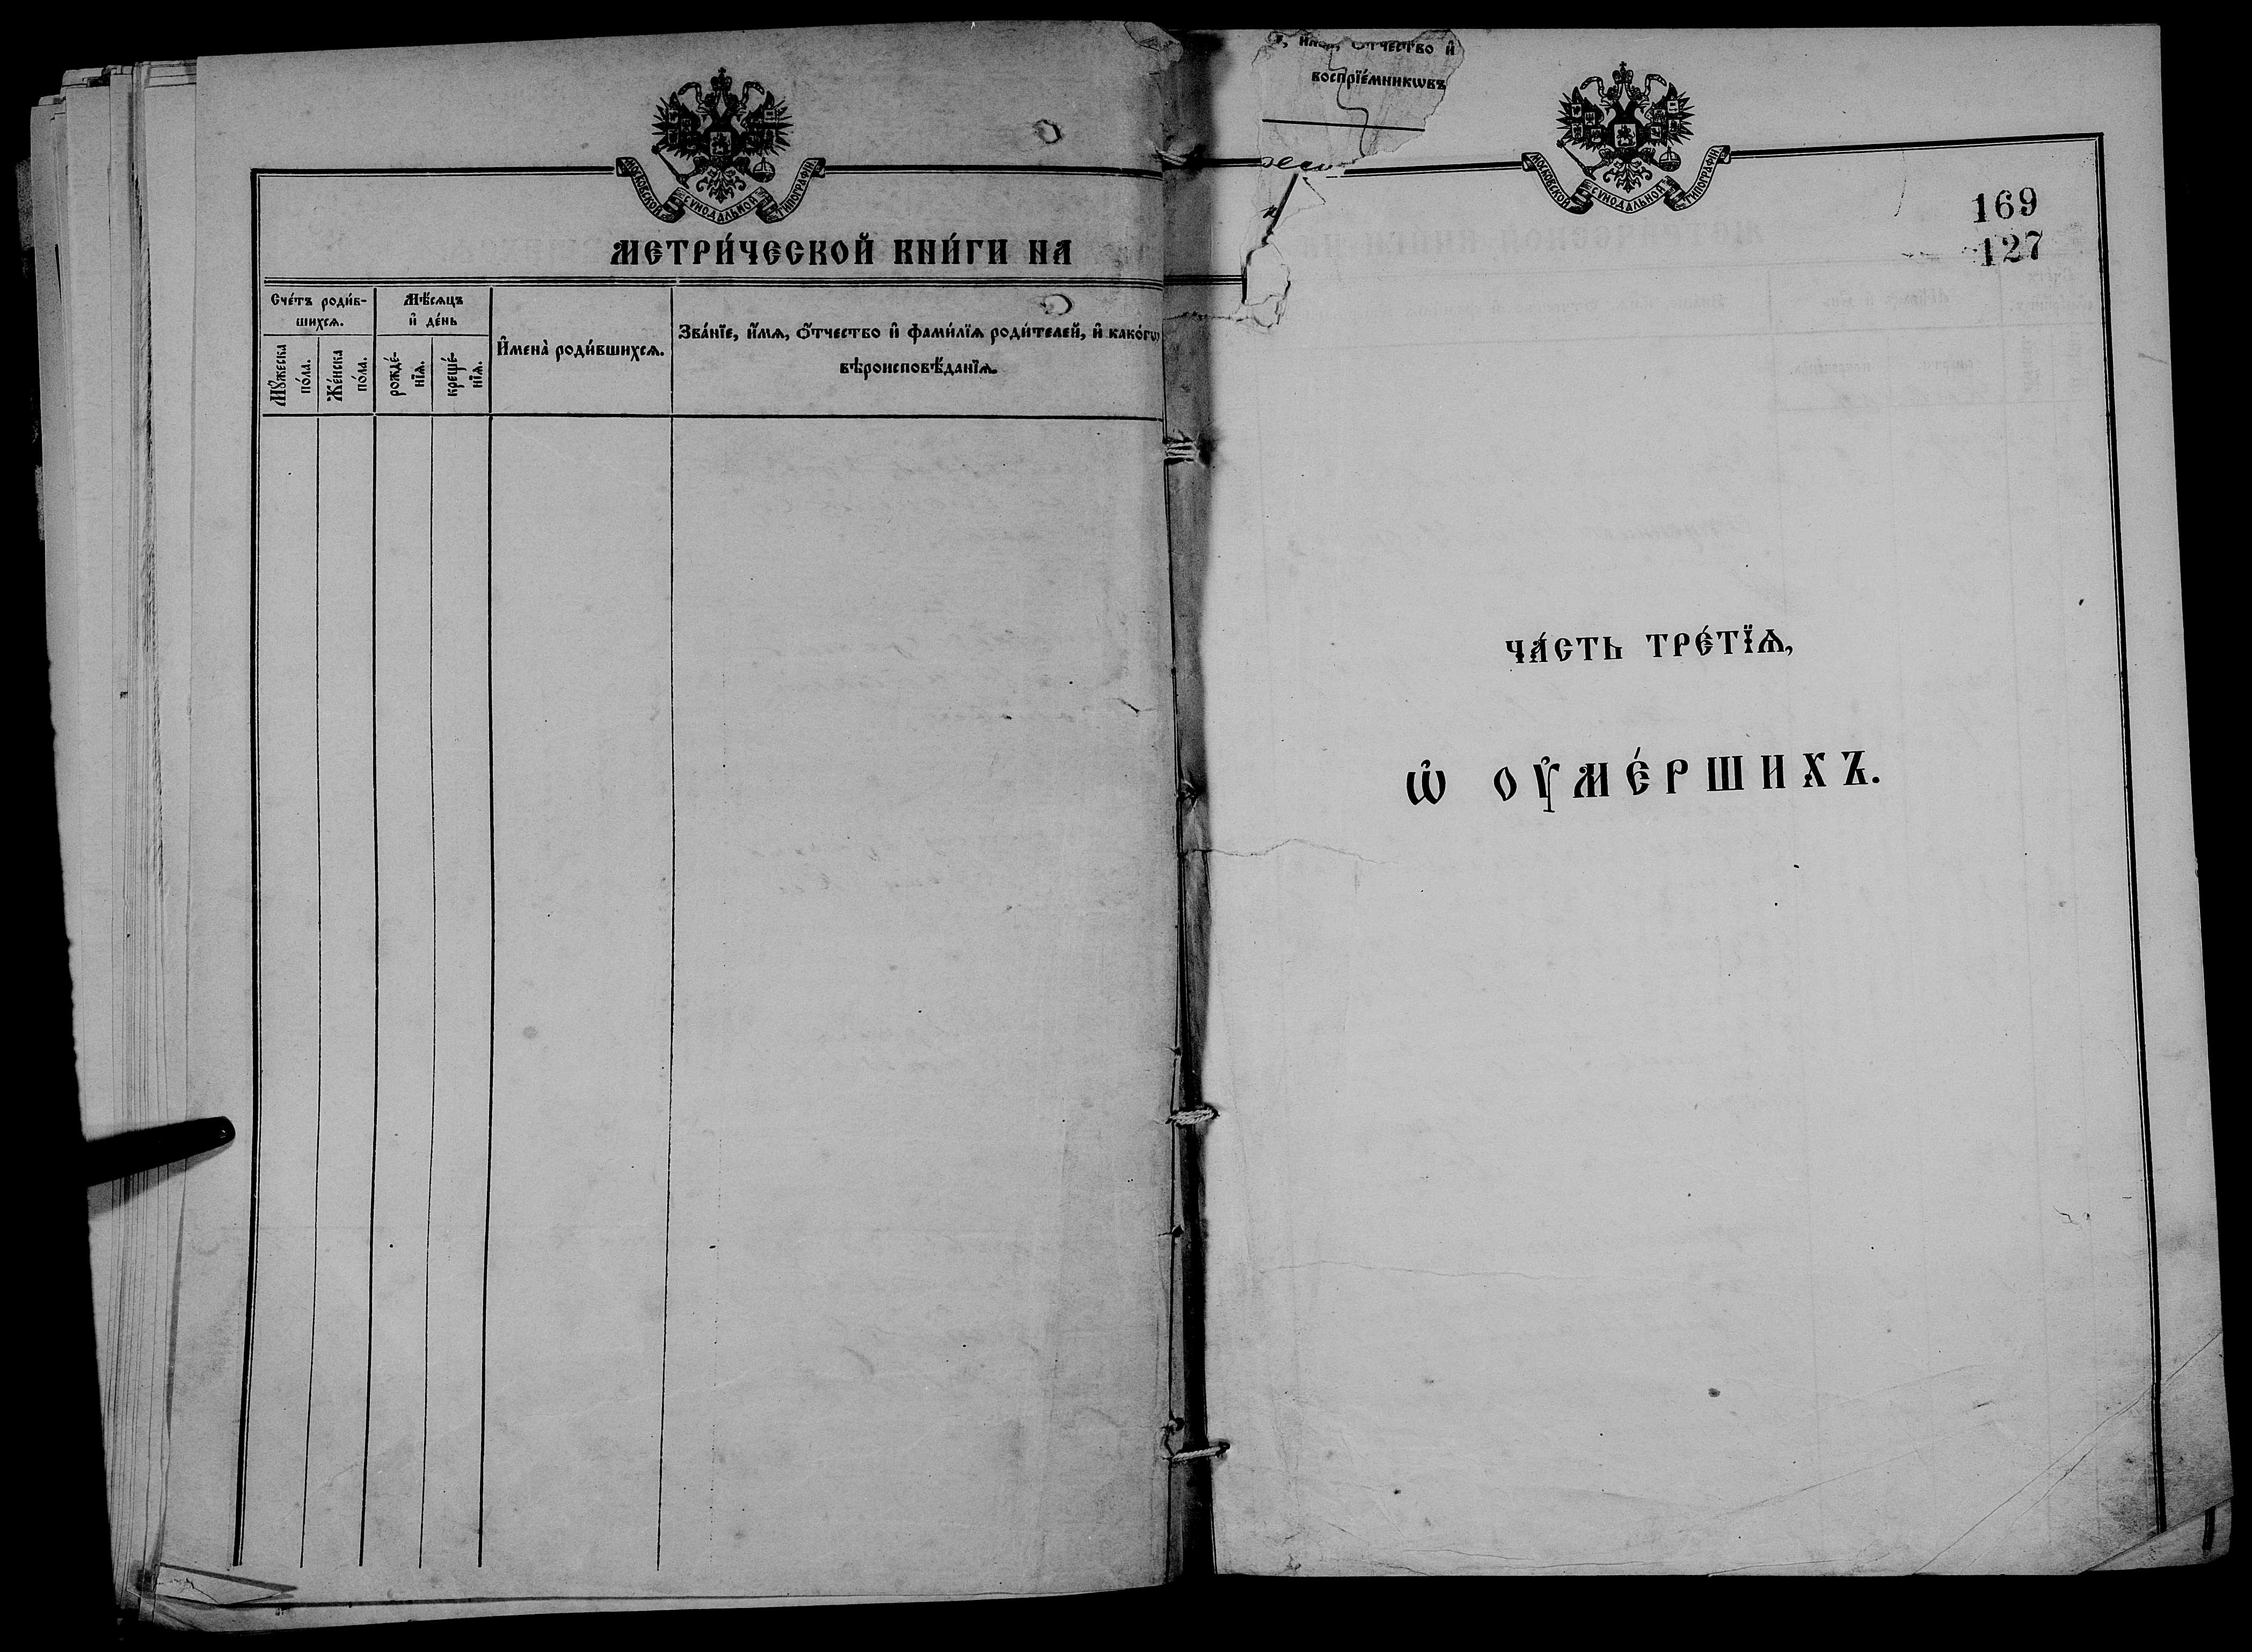 МОСКОВСКОЙ СѴНОДАЛЬНОЙ ТИПОГРАФІИ
МЕТРИ́ЧЕСКОЙ КНИ́ГИ НА
Сче́тъ роди́в-
шихсѧ.
Мѣ́сѧцъ
и҆ де́нь
И҆мена̀ роди́вшихсѧ.
Зва́нїе, и҆́мѧ, ѻ҆́тчество и҆ фами́лїѧ роди́телей, и҆ како́гѡ
вѣроисповѣ́данїѧ.
Мꙋ́жеска
по́ла.
Же́нска
по́ла.
рожде́-
нїѧ.
креще́-
нїѧ.
ѻ҆́тчество и҆
воспрїе́мникѡвъ
МОСКОВСКОЙ СѴНОДАЛЬНОЙ ТИПОГРАФІИ
169
127
ЧА́СТЬ ТРЕ́ТЇѦ,
Ѡ҆ ОУ҆МЕ́РШИХЪ.